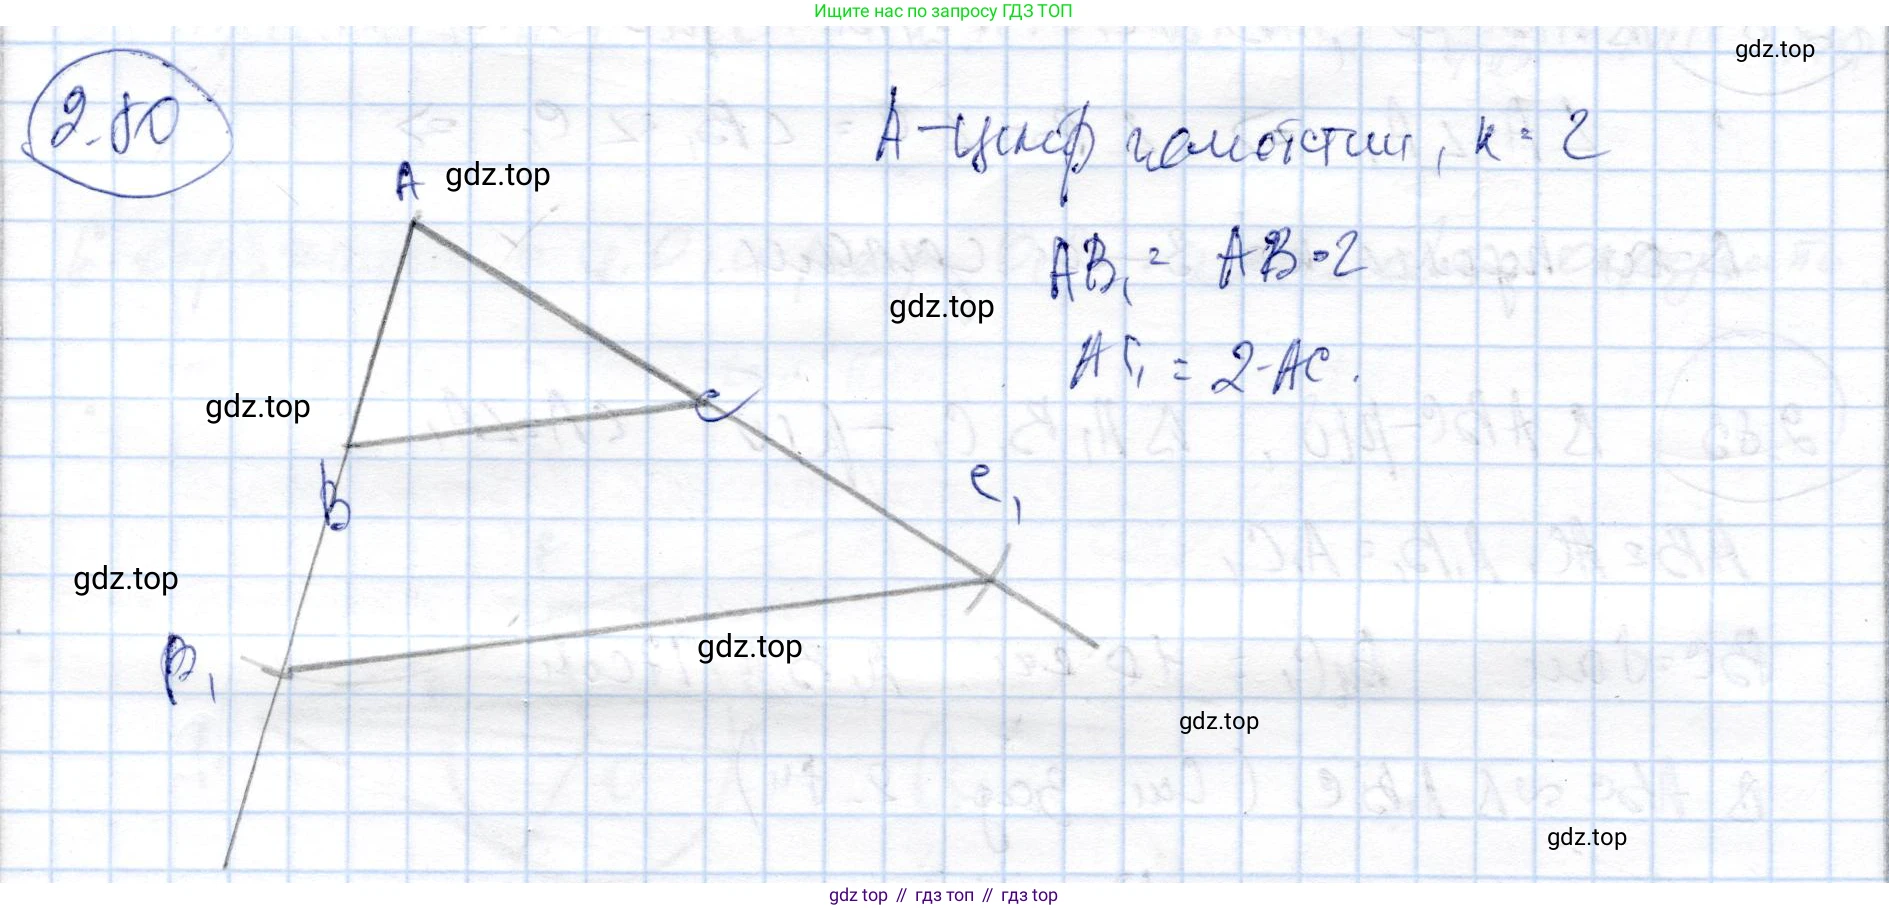 Ищите нас по запросу ГДЗ ТОП
gdz.top
2.80
A - центр гомотетии, k = 2
A gdz.top
AB₁ = AB · 2
gdz.top
AC₁ = 2 · AC.
gdz.top
C
B
C₁
gdz.top
B₁
gdz.top
gdz.top
gdz.top
gdz.top // гдз топ // гдз top